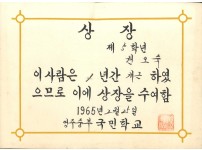 상장
제 학년
권오숙
이 사람은 1년간 개근 하였
으므로 이에 상장을 수여함
1965년 2월
국민학교